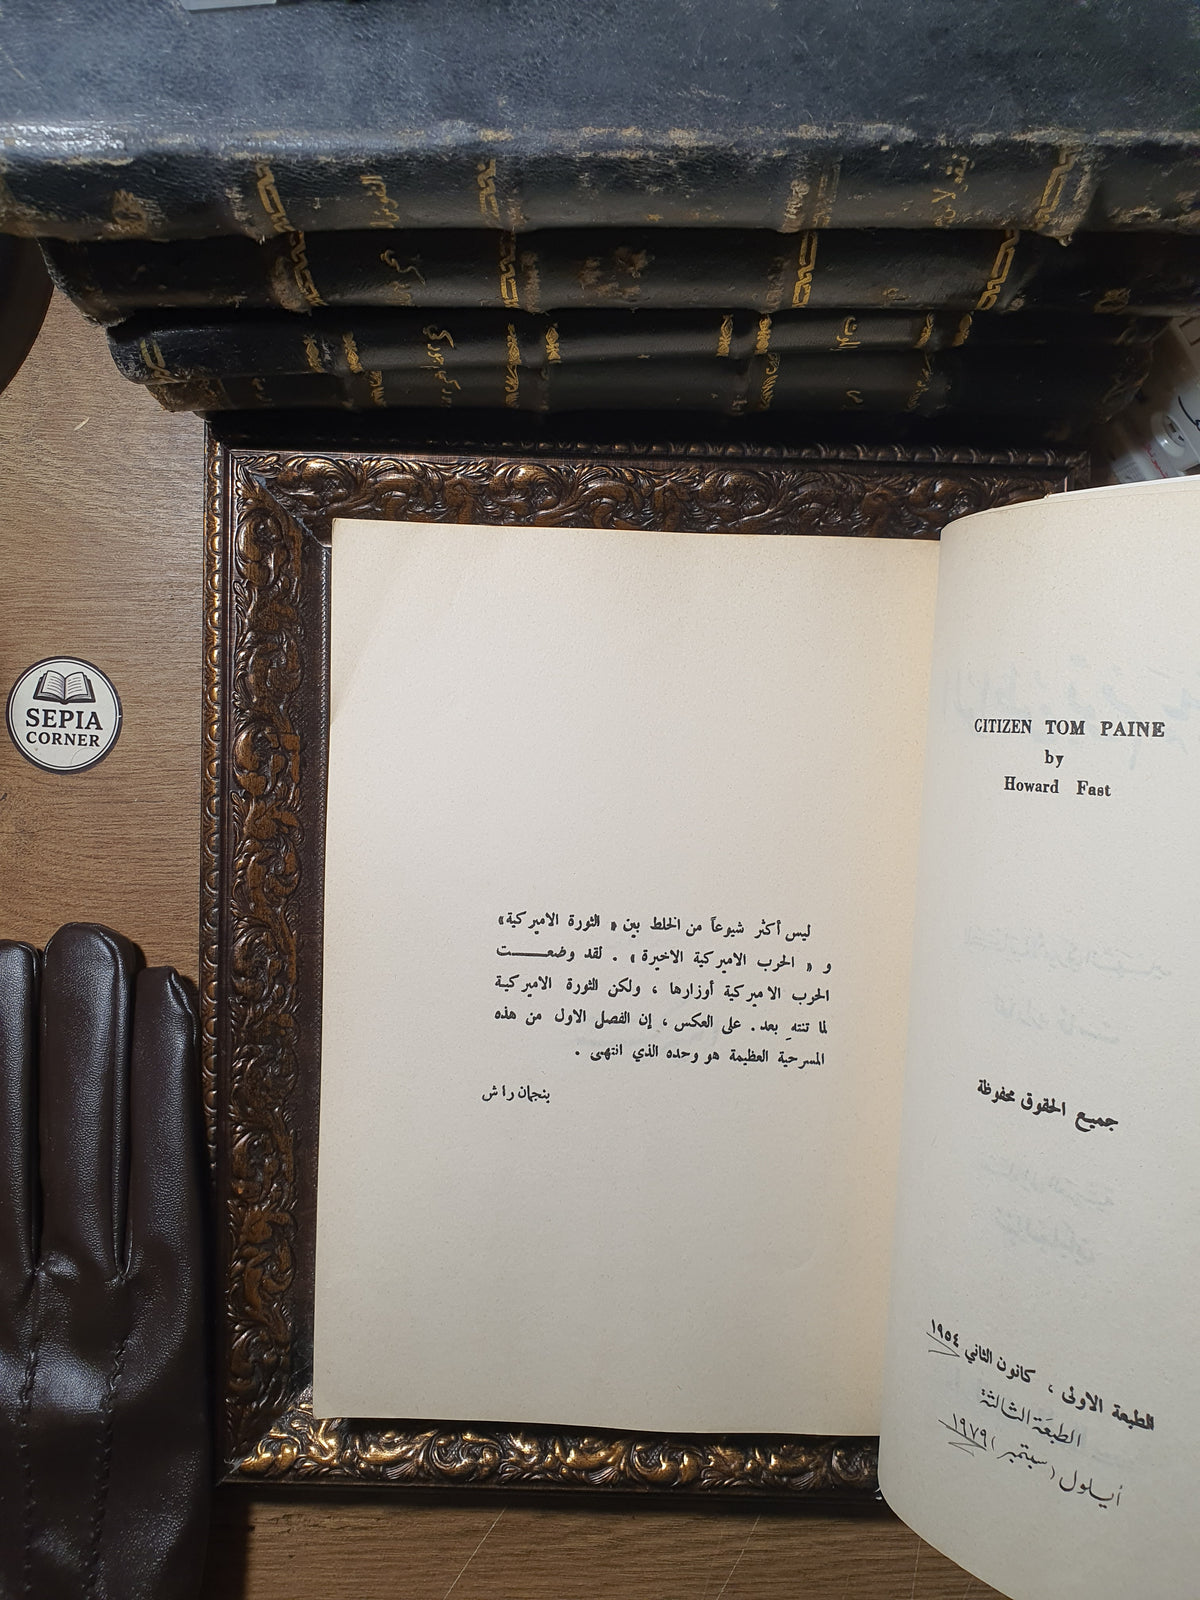 SEPIA
CORNER
CITIZEN TOM PAINE
by
Howard Fast
جميع الحقوق محفوظة
الطبعة الاولى ، كانون الثاني ١٩٥٤
الطبعة الثالثة
أيلول (سبتمبر) ١٩٧٩
ليس أكثر شيوعاً من الخلط بين « الثورة الاميركية»
و « الحرب الاميركية الاخيرة » . لقد وضعـــــت
الحرب الاميركية أوزارها ، ولكن الثورة الاميركية
لما تنتهِ بعد. على العكس ، إن الفصل الاول من هذه
المسرحية العظيمة هو وحده الذي انتهى .
بنجمان راش